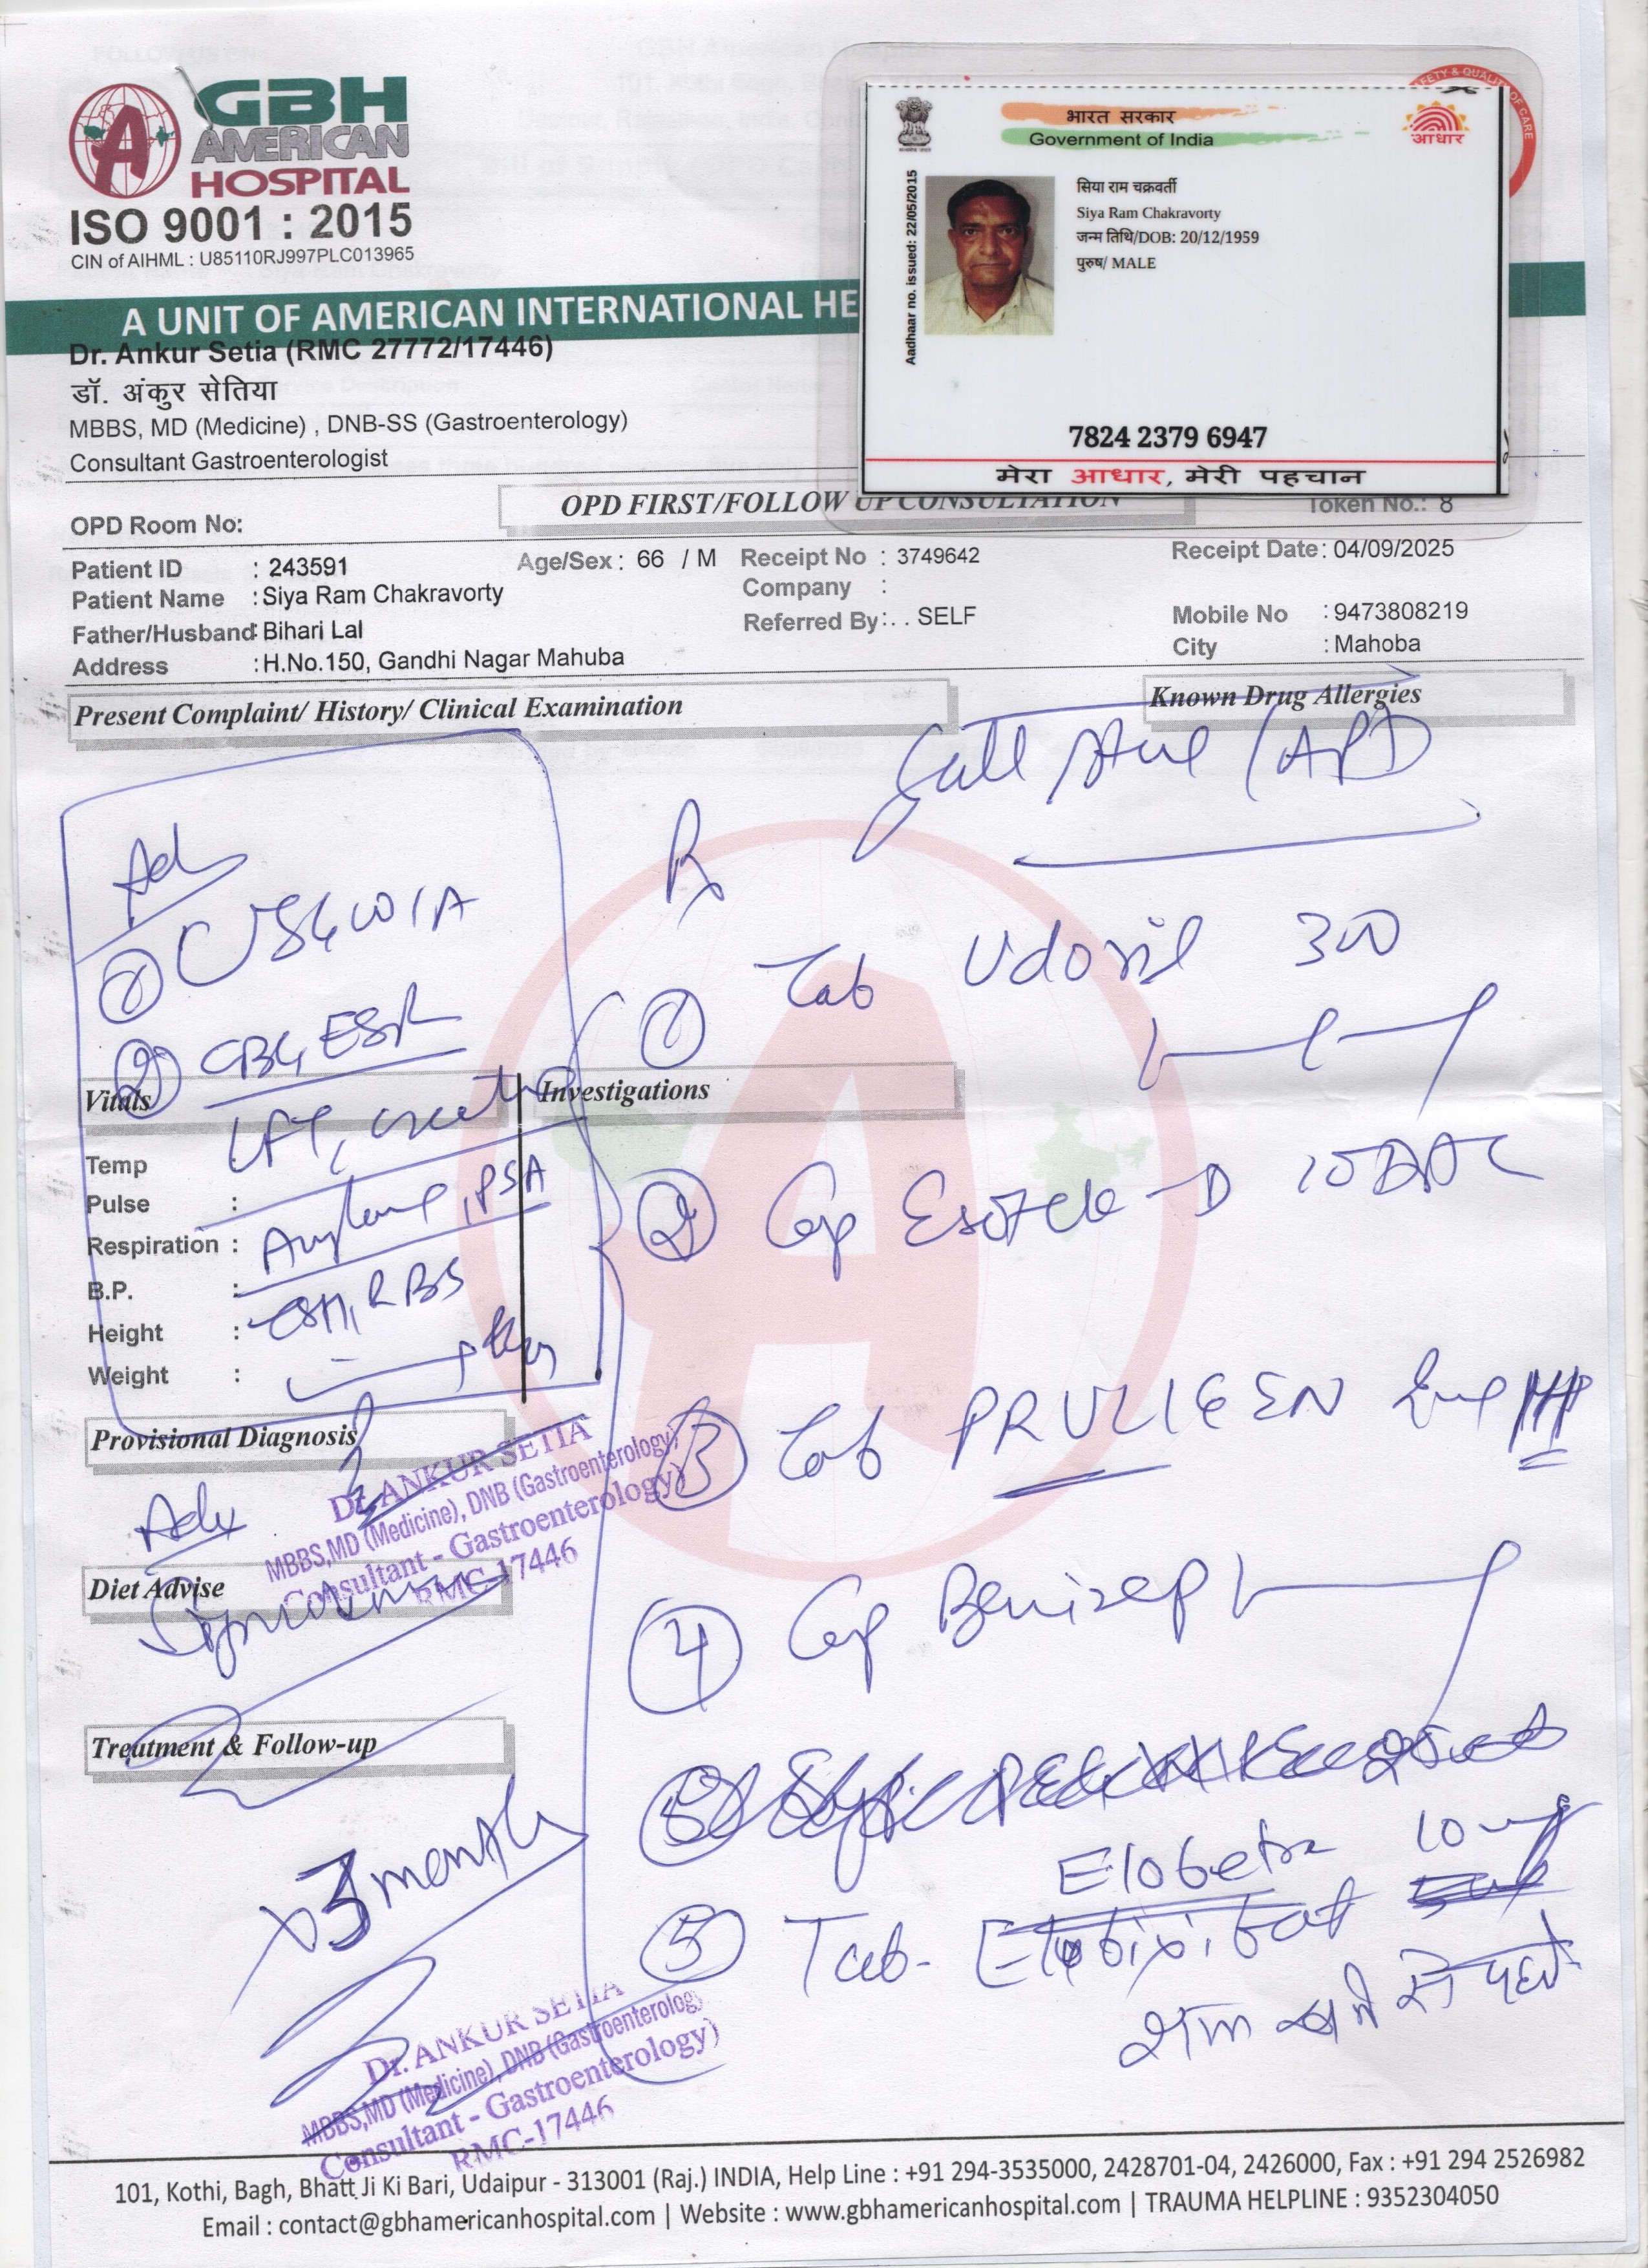 GBH
AMERICAN
HOSPITAL
ISO 9001 : 2015
CIN of AIHML : U85110RJ997PLC013965
A UNIT OF AMERICAN INTERNATIONAL HE
FETY & QUALITY OF CARE
भारत सरकार
Government of India
आधार
Aadhaar no. issued: 22/05/2015
सिया राम चक्रवर्ती
Siya Ram Chakravorty
जन्म तिथि/DOB: 20/12/1959
पुरुष/ MALE
7824 2379 6947
मेरा आधार, मेरी पहचान
Dr. Ankur Setia (RMC 27772/17446)
डॉ. अंकुर सेतिया
MBBS, MD (Medicine) , DNB-SS (Gastroenterology)
Consultant Gastroenterologist
OPD FIRST/FOLLOW UP CONSULTATION
OPD Room No:
Token No.: 8
Patient ID : 243591 Age/Sex : 66 / M Receipt No : 3749642 Receipt Date : 04/09/2025
Patient Name : Siya Ram Chakravorty Company :
Father/Husband : Bihari Lal Referred By : . . SELF Mobile No : 9473808219
Address : H.No.150, Gandhi Nagar Mahuba City : Mahoba
Present Complaint/ History/ Clinical Examination
Known Drug Allergies
Gall stone (APD)
Rx
Adv
① USG W/A
② CBC, ESR
LFT,
Amylase, PSA
RBS
① Tab Udoxil 300
② Cap D
③ Tab PRULIGEN
④ Cap
Elobetra 10 mg
⑤ Tab. Elobixibat
शाम खाने से पहले
Vitals
Investigations
Temp
Pulse :
Respiration :
B.P. :
Height :
Weight :
Provisional Diagnosis
Adv
Dr. ANKUR SETIA
MBBS,MD (Medicine), DNB (Gastroenterology)
Consultant - Gastroenterology)
RMC-17446
Diet Advise
Treatment & Follow-up
x 3 month
Dr. ANKUR SETIA
MBBS,MD (Medicine), DNB (Gastroenterology
Consultant - Gastroenterology)
RMC-17446
101, Kothi, Bagh, Bhatt Ji Ki Bari, Udaipur - 313001 (Raj.) INDIA, Help Line : +91 294-3535000, 2428701-04, 2426000, Fax : +91 294 2526982
Email : contact@gbhamericanhospital.com | Website : www.gbhamericanhospital.com | TRAUMA HELPLINE : 9352304050